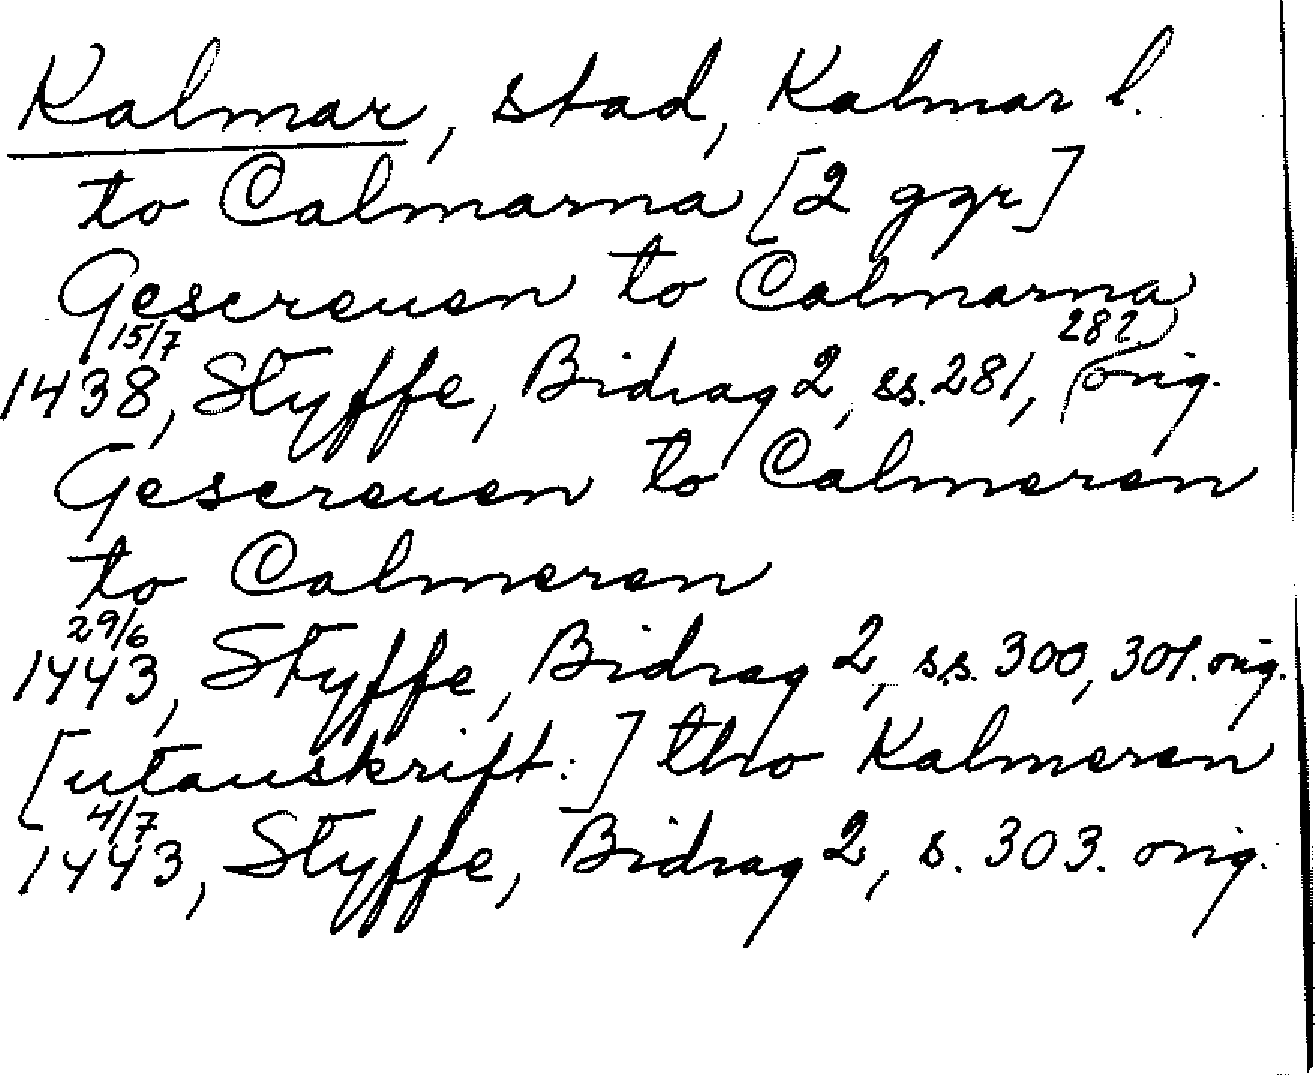 Kalmar, stad, Kalmar l.
to Calmarna [2 ggr]
Gescreuen to Calmarna
15/7 282
1438, Styffe, Bidrag 2, ss. 281, orig.
Gescreuen to Calmeren
to Calmeren
29/6
1443, Styffe, Bidrag 2, ss. 300, 301. orig.
[utanskrift:] tho Kalmeren
4/7
1443, Styffe, Bidrag 2, s. 303. orig.